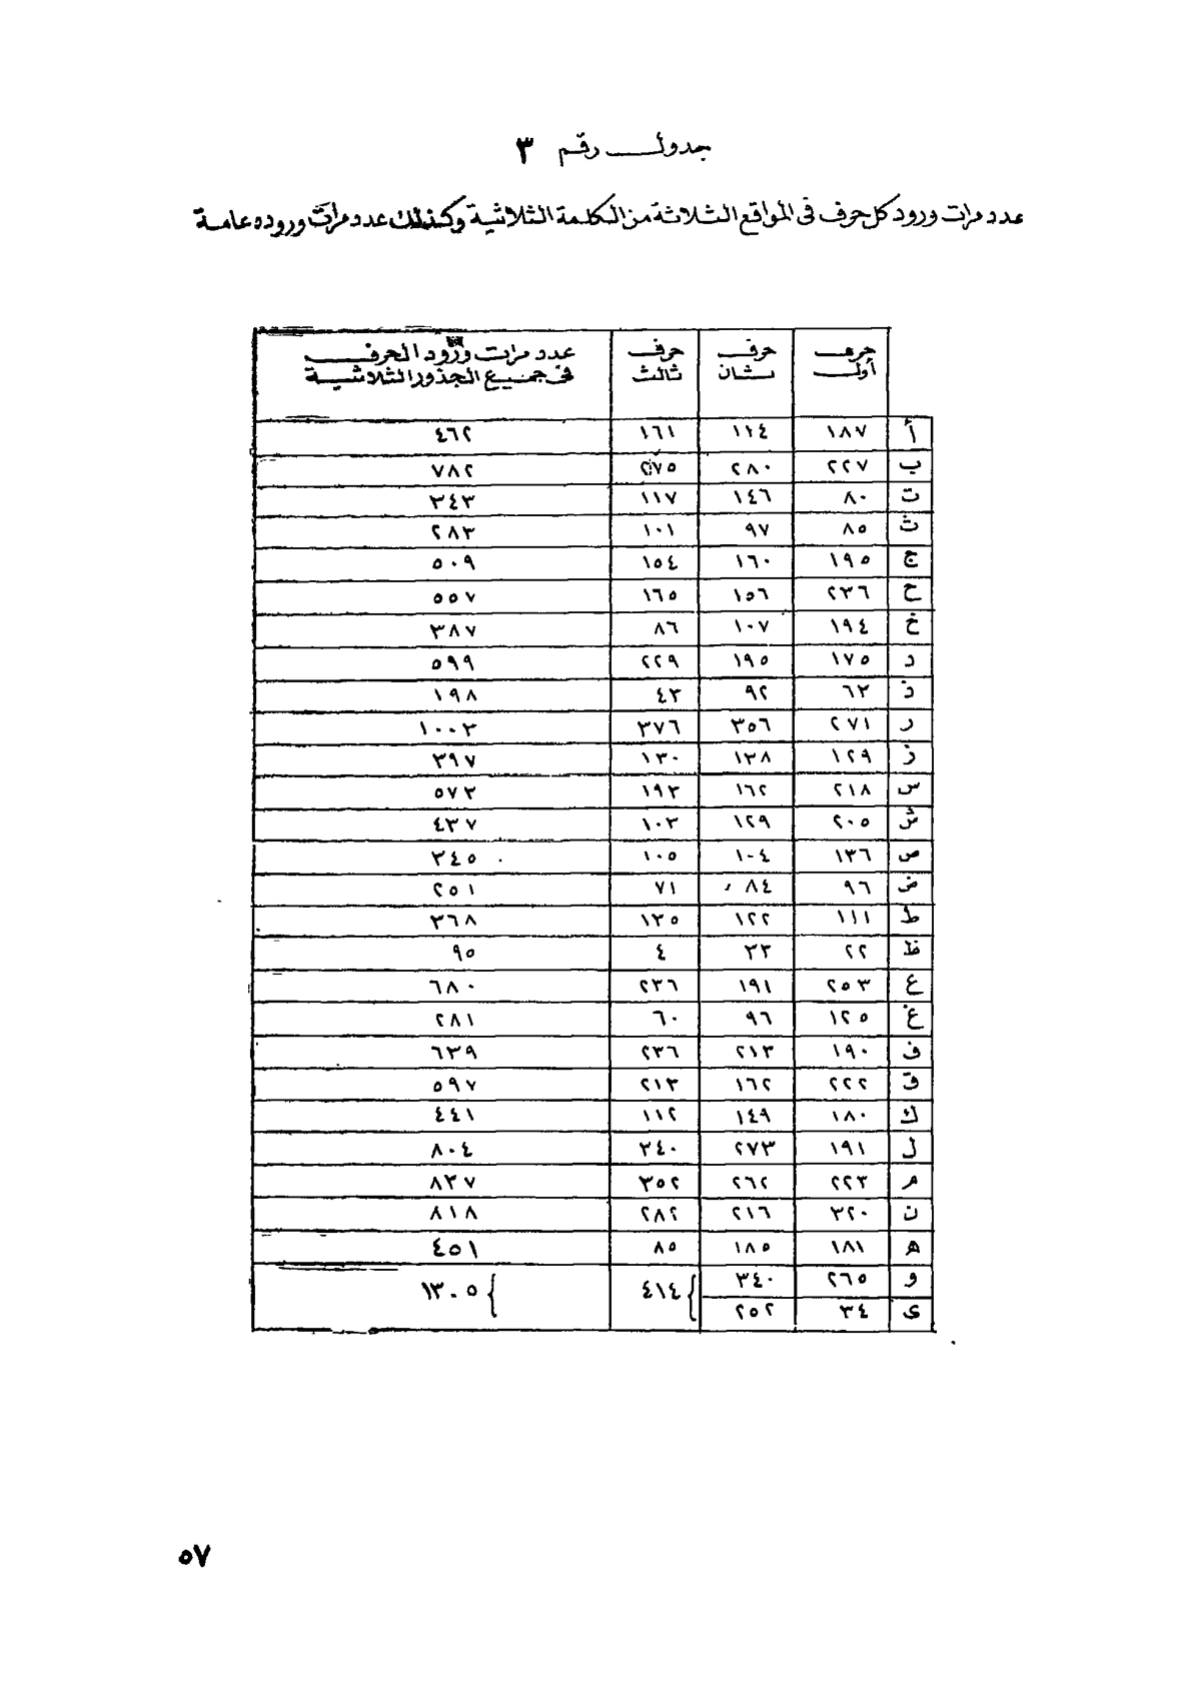 جدول رقم ٣
عدد مرات ورود كل حرف فى المواقع الثلاثة من الكلمة الثلاثية وكذلك عدد مرات وروده عامة
حرف أول | حرف ثان | حرف ثالث | عدد مرات ورود الحرف فى جميع الجذور الثلاثية
أ ١٨٧ ١١٤ ١٦١ ٤٦٢
ب ٢٢٧ ٢٨٠ ٢٧٥ ٧٨٢
ت ٨٠ ١٤٦ ١١٧ ٣٤٣
ث ٨٥ ٩٧ ١٠١ ٢٨٣
ج ١٩٥ ١٦٠ ١٥٤ ٥٠٩
ح ٢٣٦ ١٥٦ ١٦٥ ٥٥٧
خ ١٩٤ ١٠٧ ٨٦ ٣٨٧
د ١٧٥ ١٩٥ ٢٢٩ ٥٩٩
ذ ٦٣ ٩٢ ٤٣ ١٩٨
ر ٢٧١ ٣٥٦ ٣٧٦ ١٠٠٣
ز ١٢٩ ١٣٨ ١٣٠ ٣٩٧
س ٢١٨ ١٦٢ ١٩٣ ٥٧٣
ش ٢٠٥ ١٢٩ ١٠٣ ٤٣٧
ص ١٣٦ ١٠٤ ١٠٥ ٣٤٥
ض ٩٦ ٨٤ ٧١ ٢٥١
ط ١١١ ١٢٢ ١٣٥ ٣٦٨
ظ ٢٢ ٣٣ ٤ ٩٥
ع ٢٥٣ ١٩١ ٢٣٦ ٦٨٠
غ ١٢٥ ٩٦ ٦٠ ٢٨١
ف ١٩٠ ٢١٣ ٢٣٦ ٦٣٩
ق ٢٢٢ ١٦٢ ٢١٣ ٥٩٧
ك ١٨٠ ١٤٩ ١١٢ ٤٤١
ل ١٩١ ٢٧٣ ٣٤٠ ٨٠٤
م ٢٢٣ ٢٦٢ ٣٥٢ ٨٣٧
ن ٣٢٠ ٢١٦ ٢٨٢ ٨١٨
ه ١٨١ ١٨٥ ٨٥ ٤٥١
و ٢٦٥ ٣٤٠ } ٤١٤ } ١٣٠٥
ى ٣٤ ٢٥٢
٥٧